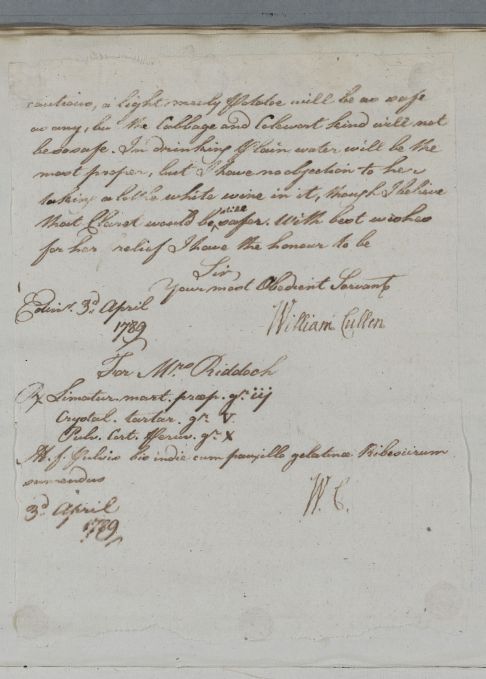 cautious, a light mealy Potatoe will be as safe
as any, but the Cabbage and Colewort kind will not
be so safe. In drinking Plain water will be the
most proper, but I have no objection to her
taking a little white wine in it, though I believe
that Claret would be still safer. With best wishes
for her relief I have the honour to be
Sir
Your most Obedient Servant
Edinr. 3d. April
1789
William Cullen
For Mrs Riddoch
℞ Limatur. mart. præp. gr. iij
Crystal. tartar. gr. V
Pulv. Cort. Peruv. gr. X
M. f. Pulvis bis indie cum pauxillo gelatinæ Ribesiorum
sumendus
3d April
1789
W. C.